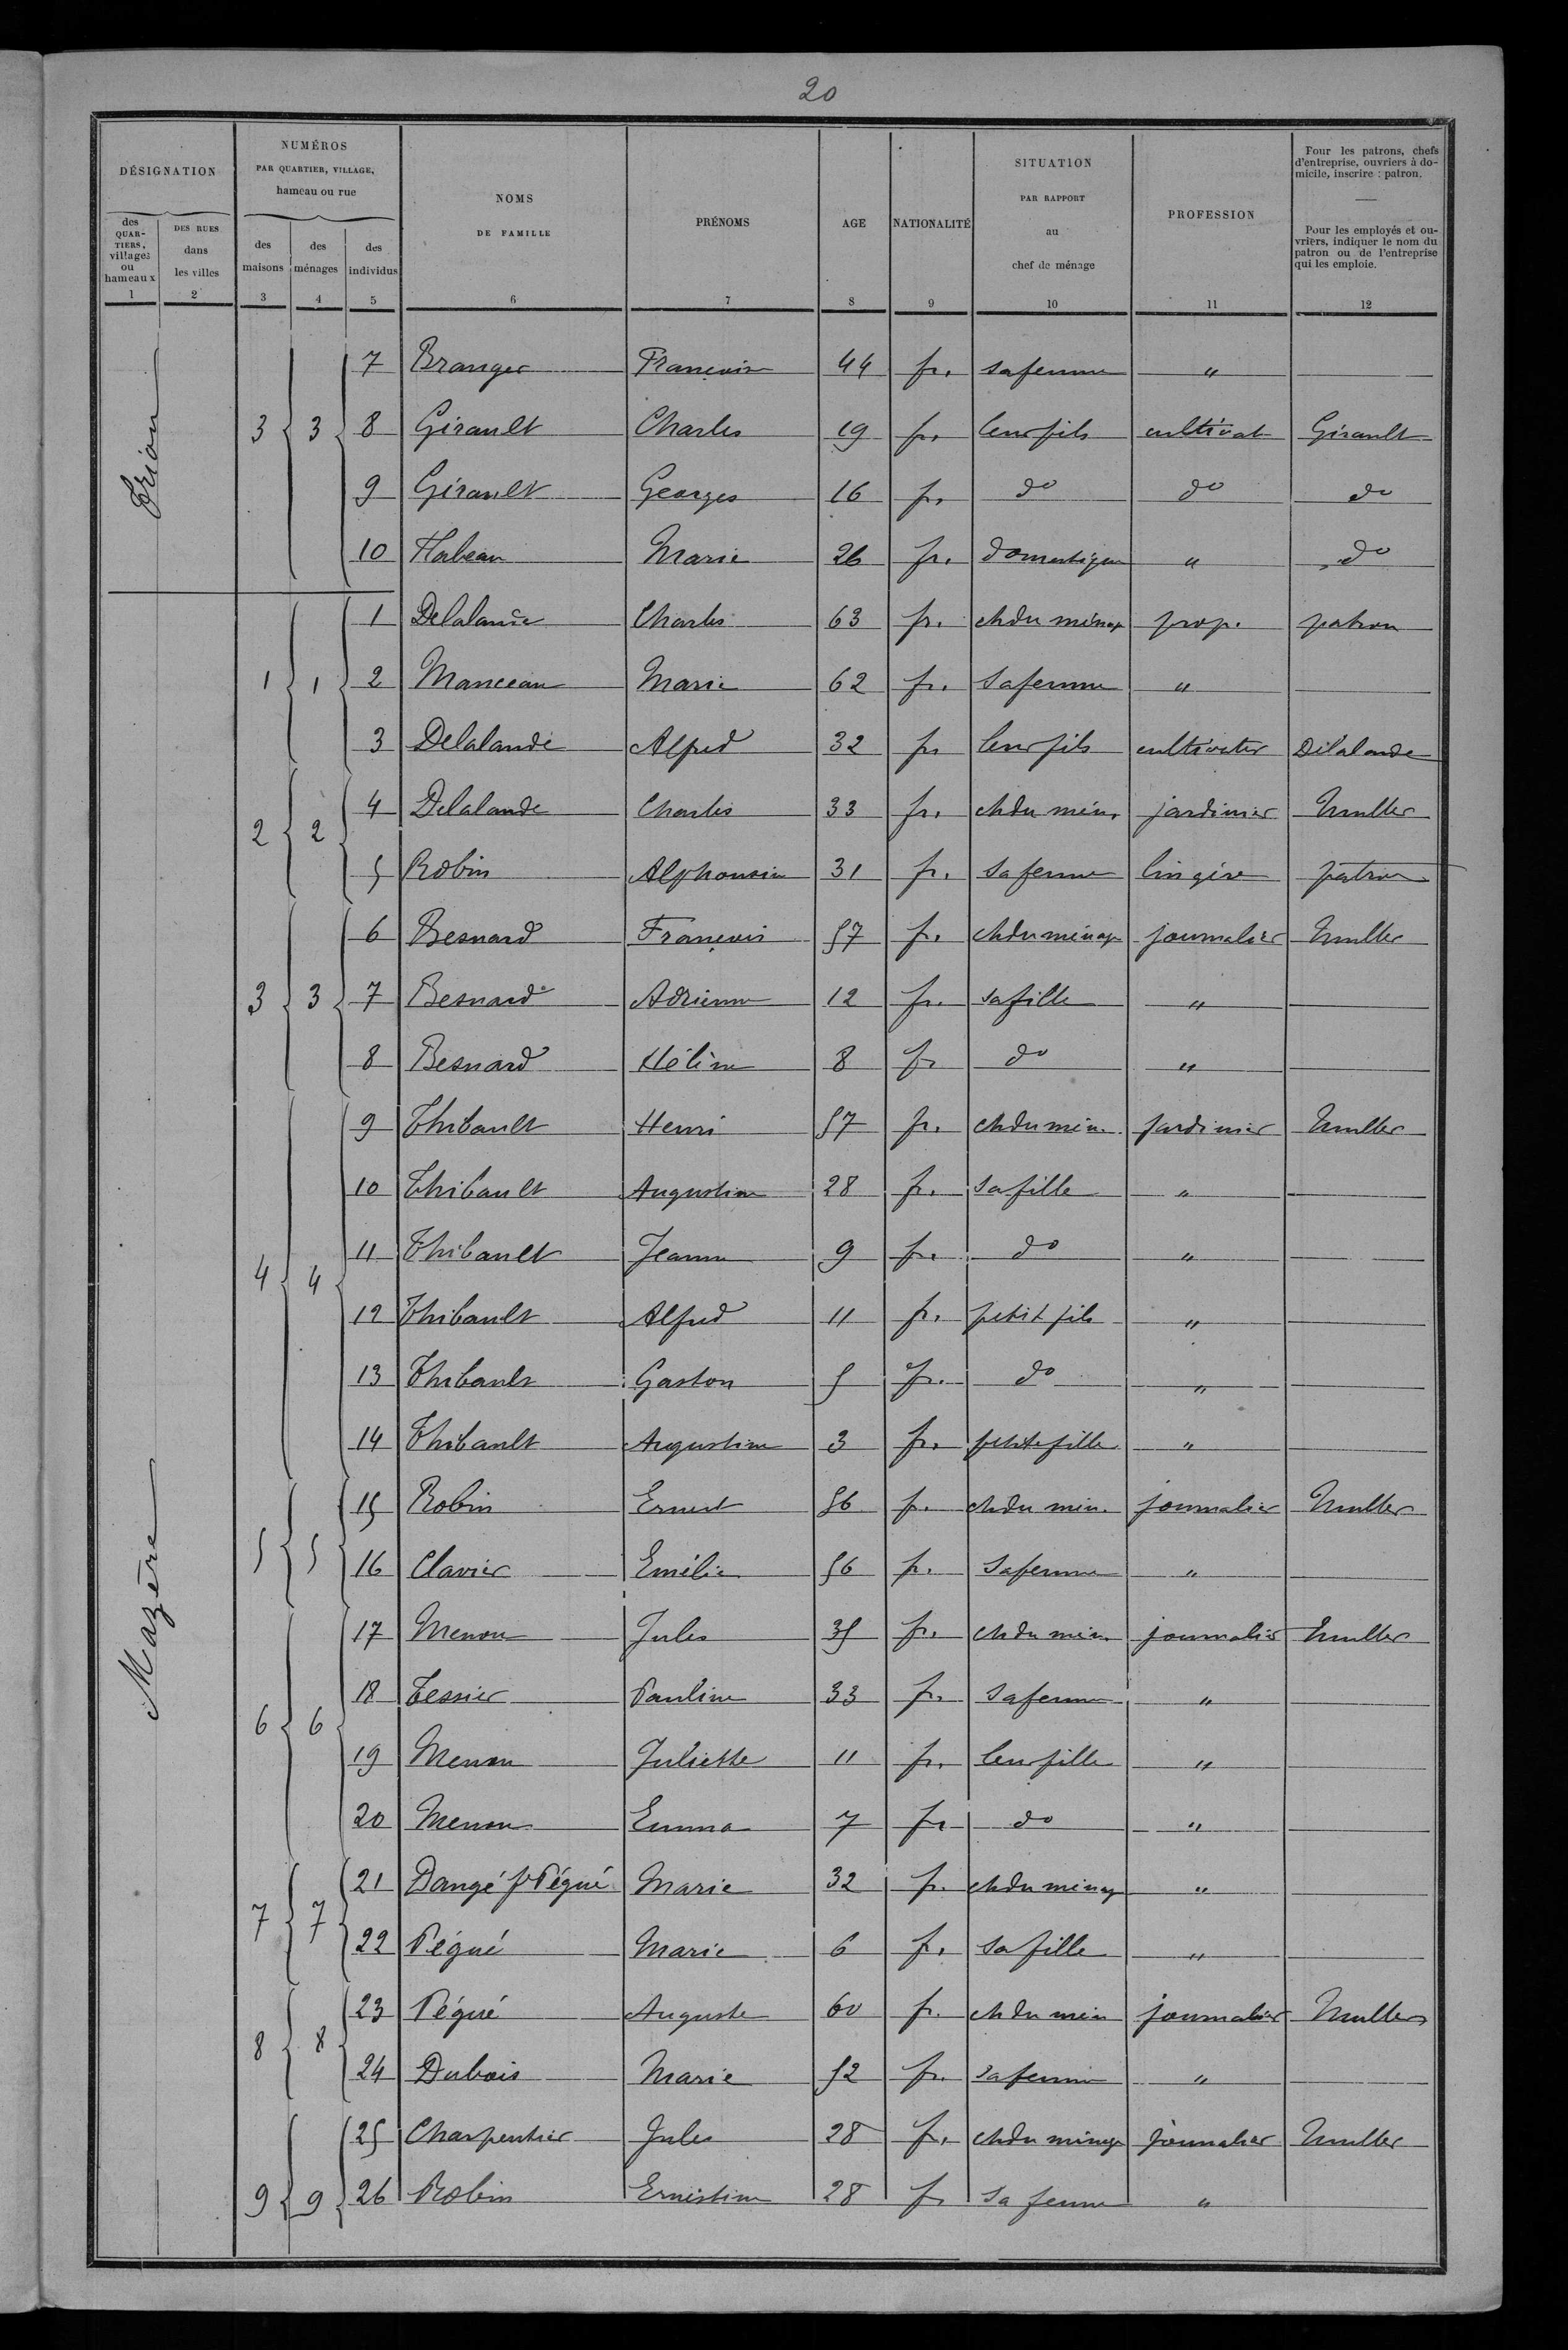 20
DÉSIGNATION
des QUARTIERS, villages ou hameaux
DES RUES dans les villes
NUMÉROS PAR QUARTIER, VILLAGE, hameau ou rue
des maisons
des ménages
des individus
NOMS DE FAMILLE
PRÉNOMS
AGE
NATIONALITÉ
SITUATION PAR RAPPORT au chef de ménage
PROFESSION
Pour les patrons, chefs d'entreprise, ouvriers à domicile, inscrire : patron.
Pour les employés et ouvriers, indiquer le nom du patron ou de l'entreprise qui les emploie.
1 2 3 4 5 6 7 8 9 10 11 12
Trion
7 Branger 44 fr. sa femme "
3 3 8 Girault Charles 19 fr. leur fils cultivat Girault
9 Girault Georges 16 fr. do do do
10 Marie 26 fr. domestique " do
Mazère
1 Delalande Charles 63 fr. ch du ménag prop. patron
1 1 2 Manceau Marie 62 fr. sa femme "
3 Delalande Alfred 32 fr leur fils cultivater Délalande
2 2 4 Delalande Charles 33 fr. ch du mén. jardinier Muller
5 Robin Alphonsine 31 fr. sa femme lingère patron
6 Besnard François 57 fr. ch du ménage journalier Muller
3 3 7 Besnard Adrienne 12 fr. sa fille "
8 Besnard Hélène 8 fr do "
9 Thibault Henri 57 fr. ch du mén. jardinier Muller
10 Thibault Augustine 28 fr. sa fille "
11 Thibault Jeanne 9 fr. do "
4 4 12 Thibault Alfred 11 fr. petit fils "
13 Thibault Gaston 5 fr. do "
14 Thibault Augustine 3 fr. petite fille "
15 Robin Ernest 56 fr. ch du mén. journalier Muller
5 5 16 Clavier Emélie 56 fr. sa femme "
17 Menou Jules 35 fr. ch du mén. journalier Muller
18 Tessier Pauline 33 fr. sa femme "
6 6 19 Menou Juliette 11 fr. leur fille "
20 Menou Emma 7 fr do "
21 Dangé fe Pégué Marie 32 fr. ch du ménag "
7 7 22 Pégué Marie 6 fr. sa fille "
23 Pégué Auguste 60 fr. ch du mén journalier Muller
8 8 24 Dubois Marie 52 fr. sa femme "
25 Charpentier Jules 28 fr. ch du ménage journalier Muller
9 9 26 Robin Ernestine 28 fr sa femme "